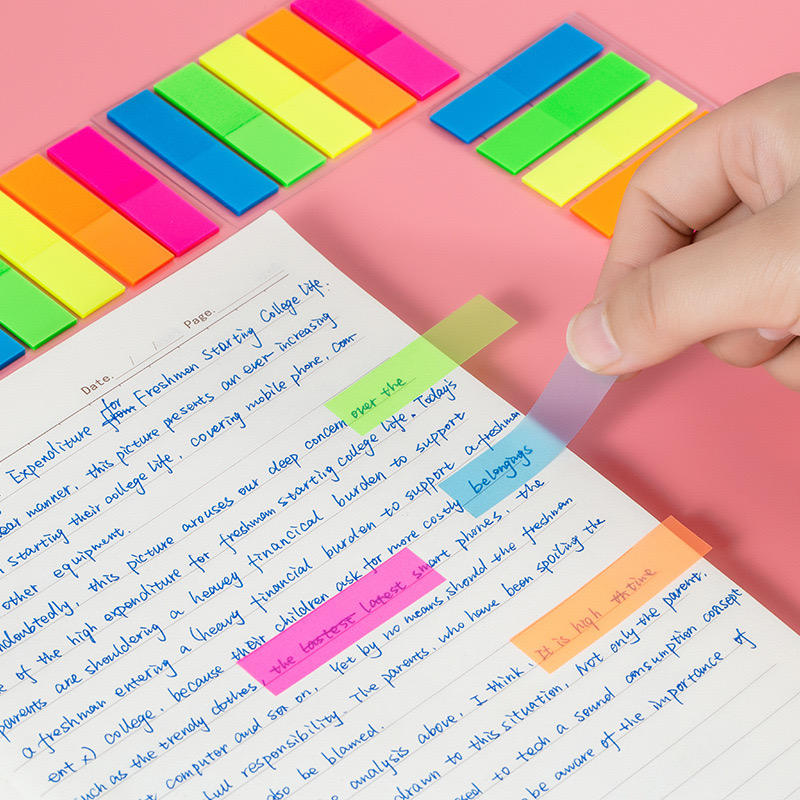 Date. / / Page.
Expenditure for Freshmen Starting College Life.
ear manner, this picture presents an ever-increasing
n starting their college life, covering mobile phone, com-
other equipment.
ndoubtedly, this picture arouses our deep concern over the
e of the high expenditure for freshmen starting college life. Today's
parents are shouldering a heavy financical burden to support
a freshman entering a (heavy financial burden to support a freshman
ent x) college, because their children ask for more costly belongings
such as the trendy clothes, the tastest latest smart phones, the
t computer and so on. Yet by no means should the freshman
full responsibility. The parents, who have been spoiling the
also be blamed.
analysis above, I think, It is high thtime
drawn to this situation, Not only the parent,
sed to tech a sound consumption consept
be aware of the importance of